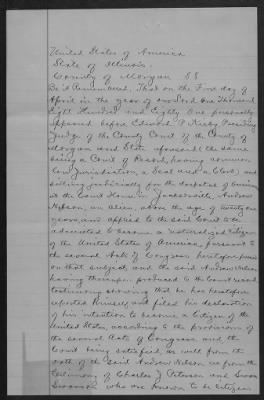 United States of America
State of Illinois.
County of Morgan SS
Be it Remembered, That on the First day of
April in the year of our Lord One Thousand
Eight Hundred and Eighty One personally
appeared before Edward P. Kirby Presiding
Judge of the County Court of the County of
Morgan and State aforesaid (the same
being a Court of Record, having common
law Jurisdiction, a Seal and a Clerk) and
sitting judicially for the despatch of business
at the Court House in Jacksonville, Andrew
Nelson, an alien, above the age of twenty one
years, and applied to the said Court to be
admitted to become a naturalized Citizen
of the United States of America, pursuant to
the several Acts of Congress heretofore passed
on that subject, and the said Andrew Nelson
having thereupon produced to the Court record
testimony showing that he has heretofore
reported himself and filed his declaration
of his intention to become a Citizen of the
United States, according to the provisions of
the several Acts of Congress and the
Court being satisfied, as well from the
oath of the said Andrew Nelson as from the
testimony of Charles J. Peterson and Swan
Swanson who are known to be Citizens